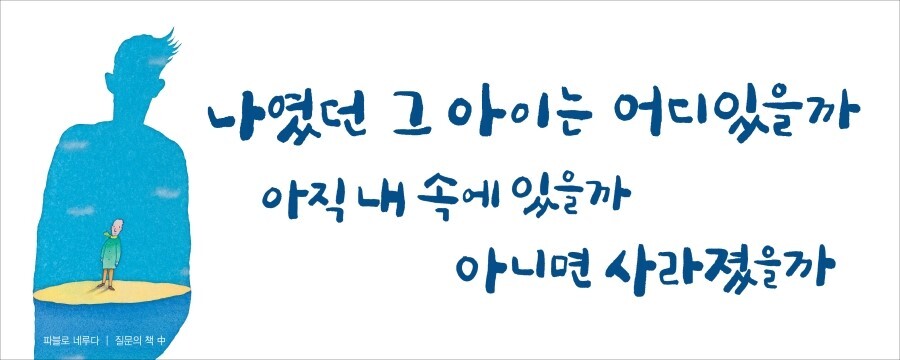 나였던 그 아이는 어디있을까
아직 내 속에 있을까
아니면 사라졌을까
파블로 네루다 | 질문의 책 中